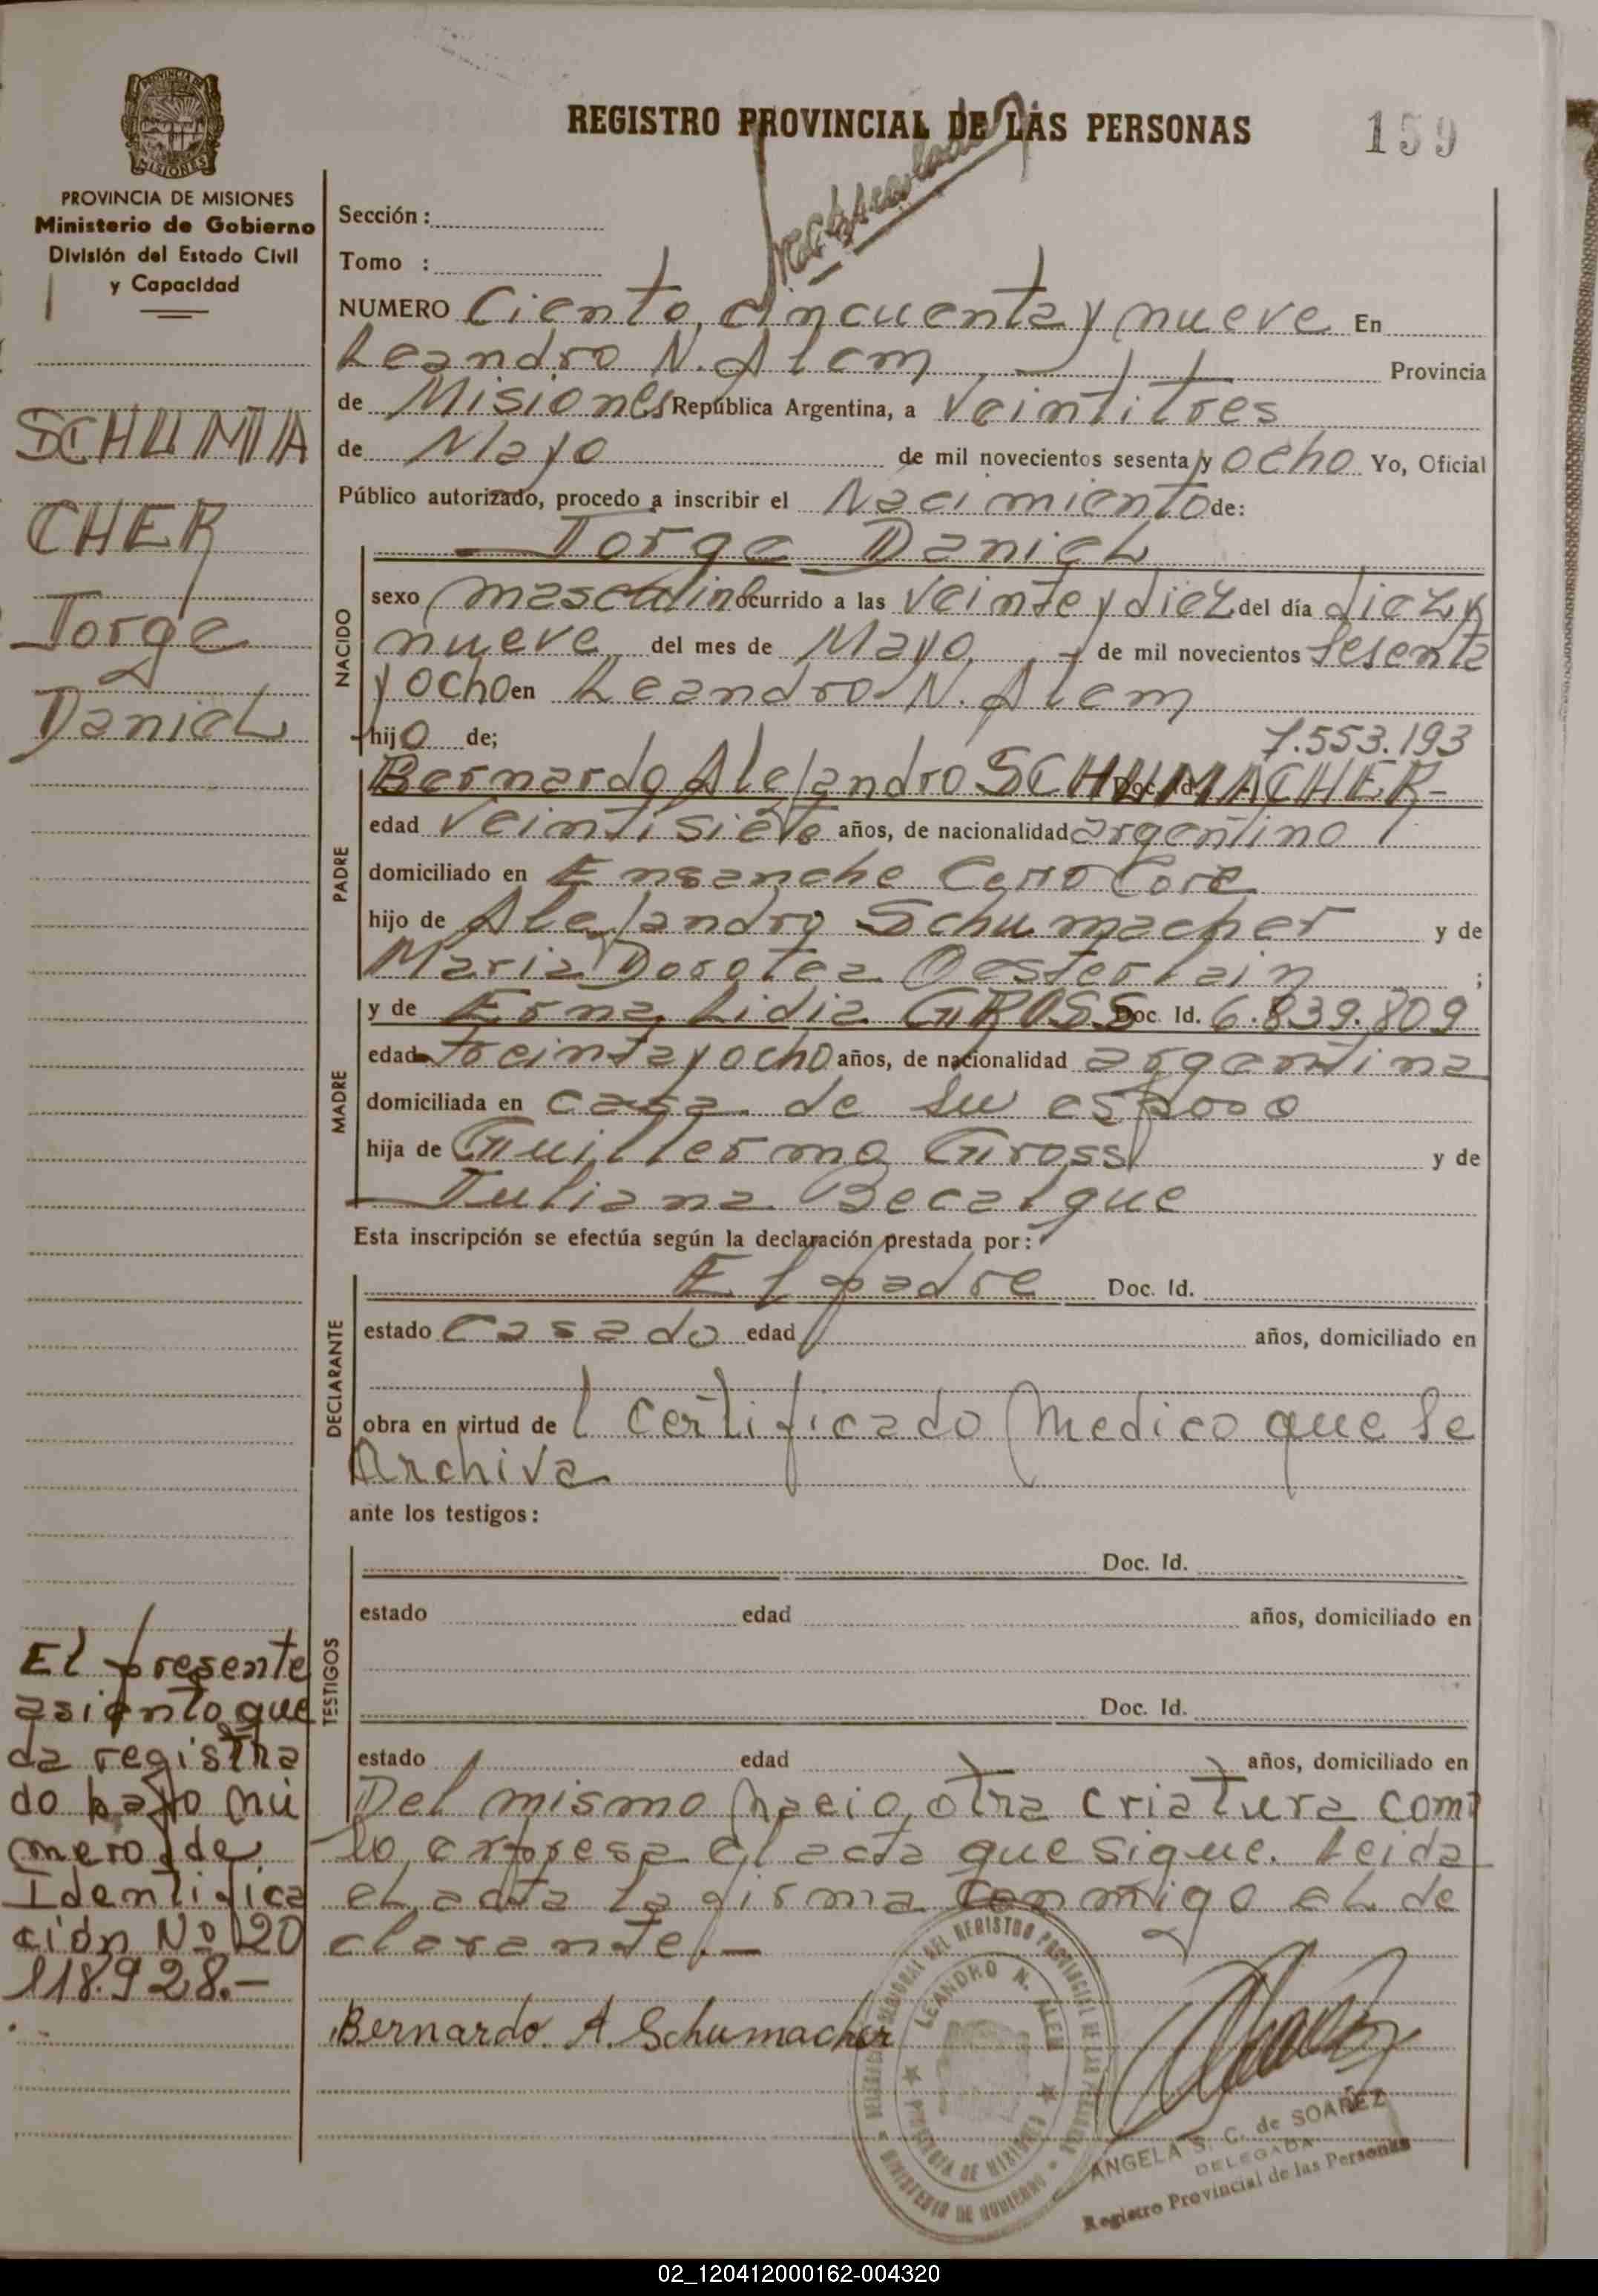 REGISTRO PROVINCIAL DE LAS PERSONAS
159
PROVINCIA DE MISIONES
Ministerio de Gobierno
División del Estado Civil
y Capacidad
SCHUMA
CHER
Jorge
Daniel
El presente
asiento que
da registra
do bajo nú
mero de
Identifica
ción Nº 20
118.928.-
Sección:
Tomo :
NUMERO Ciento cincuenta y nueve En
Leandro N. Alem Provincia
de Misiones República Argentina, a Veintitres
de Mayo de mil novecientos sesenta y ocho Yo, Oficial
Público autorizado, procedo a inscribir el Nacimiento de:
Jorge Daniel
NACIDO
sexo masculino ocurrido a las Veinte y diez del día diez y
nueve del mes de Mayo de mil novecientos Sesenta
y ocho en Leandro N. Alem
hijo de;
7.553.193
PADRE
Bernardo Alejandro SCHUMACHER- Doc. Id.
edad Veintisiete años, de nacionalidad argentino
domiciliado en Ensanche Cerro Corá
hijo de Alejandro Schumacher y de
Maria Dorotea Oesterlain ;
MADRE
y de Erna Lidia GROSS Doc. Id. 6.839.809
edad treinta y ocho años, de nacionalidad argentina
domiciliada en casa de su esposo
hija de Guillermo Gross y de
Juliana Becalque
Esta inscripción se efectúa según la declaración prestada por:
DECLARANTE
El padre Doc. Id.
estado Casado edad años, domiciliado en
obra en virtud de l Certificado Medico que Se
Archiva
ante los testigos:
TESTIGOS
Doc. Id.
estado edad años, domiciliado en
Doc. Id.
estado edad años, domiciliado en
Del mismo nacio otra criatura com
lo expresa el acta que sigue. Leida
el acta la firma conmigo el de
clarante.-
Bernardo A. Schumacher
LEANDRO N. ALEM
PROVINCIA DE MISIONES
MINISTERIO DE GOBIERNO
ANGELA S. C. de SOAREZ
DELEGADA
Registro Provincial de las Personas
02_120412000162-004320